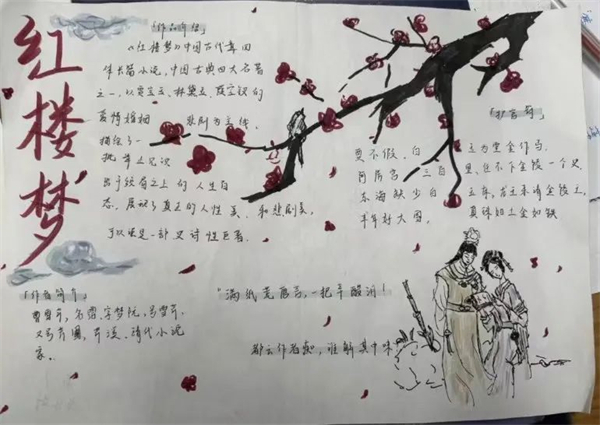 红楼梦
「作品简介」
《红楼梦》中国古代章回
体长篇小说,中国古典四大名著
之一,以贾宝玉、林黛玉、薛宝钗的
爱情婚姻 悲剧为主线,
描绘了一
批 见识
出于须眉之上的人生百
态,展现了真正的人性美、和悲剧美,
可以说是一部史诗性巨著.
「作者简介」
曹雪芹,名霑,字梦阮,号雪芹,
又号芹圃,芹溪,清代小说
家.
「护官符」
贾不假,白 玉为堂金作马,
阿房宫,三百 里,住不下金陵一个史,
东海缺少白 玉床,龙王来请金陵王,
丰年好大 真珠如土金如铁
“满纸荒唐言,一把辛酸泪!
都云作者痴,谁解其中味